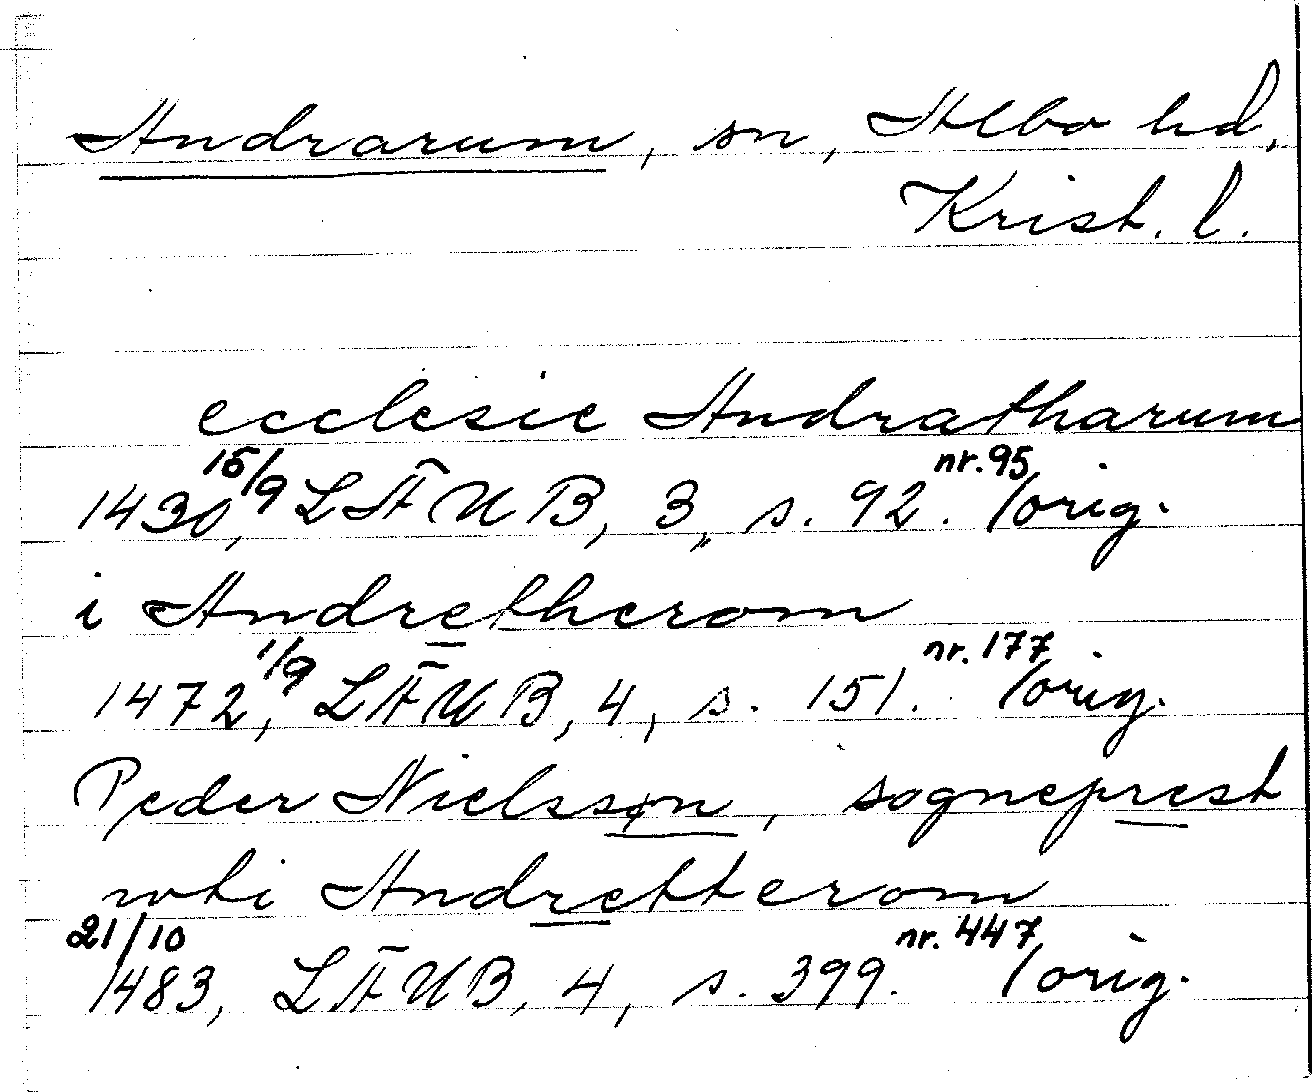 Andrarum, sn, Albo hd,
Krist. l.
ecclesie Andratharum
1430, 15/9 LÄUB, 3, s. 92. nr. 95 /orig.
i Andretherom
1472, 1/9 LÄUB, 4, s. 151. nr. 177 /orig.
Peder Nielssøn, sogneprest
wti Andretterom
21/10
1483, LÄUB, 4, s. 399. nr. 447 /orig.